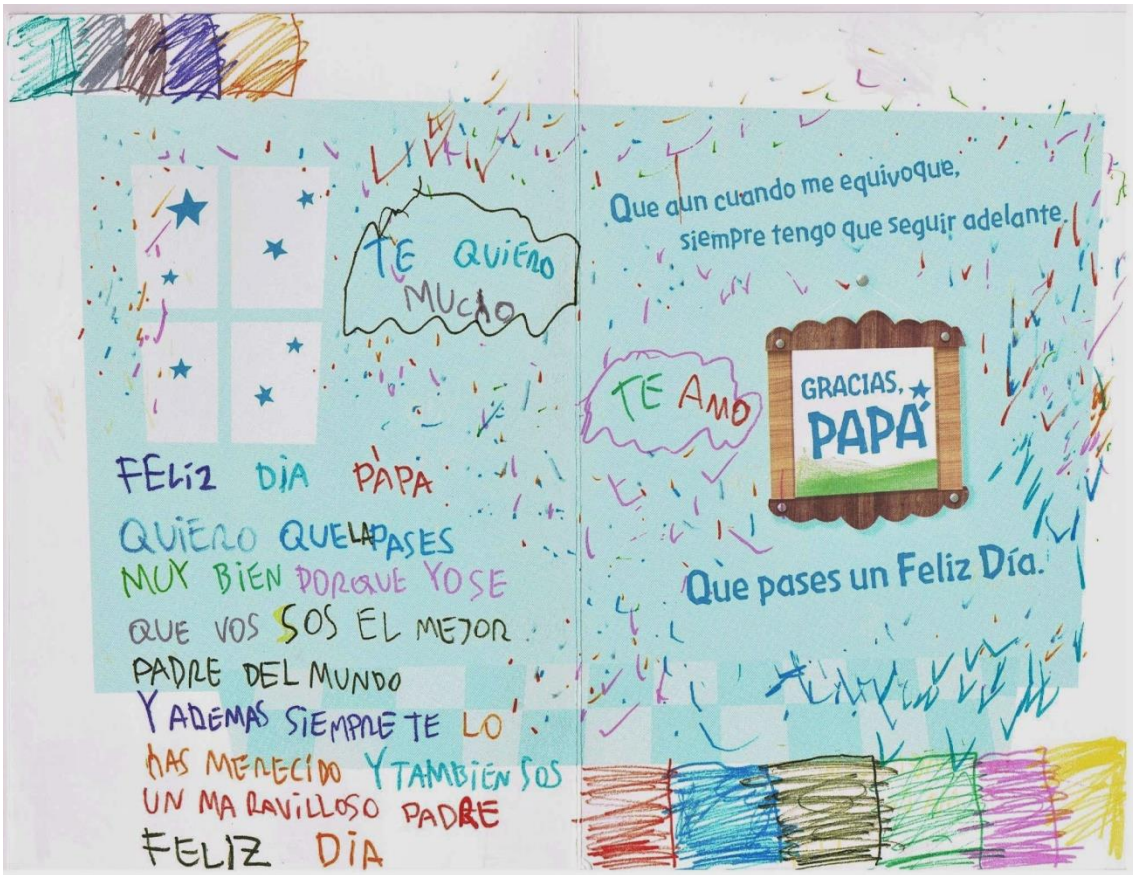 TE QUiERO
MUCHO
FELiZ DiA PÀPA
QUiERO QUE LA PASES
MUY BiEN PORQUE YO SE
QUE VOS SOS EL MEJOR
PADRE DEL MUNDO
Y ADEMAS SiEMPRE TE LO
HAS MERECiDO Y TAMBiEN SOS
UN MARAViLLOSO PADRE
FELIZ DiA
Que aun cuando me equivoque,
siempre tengo que seguir adelante.
TE AMO
GRACIAS,
PAPÁ
Que pases un Feliz Día.